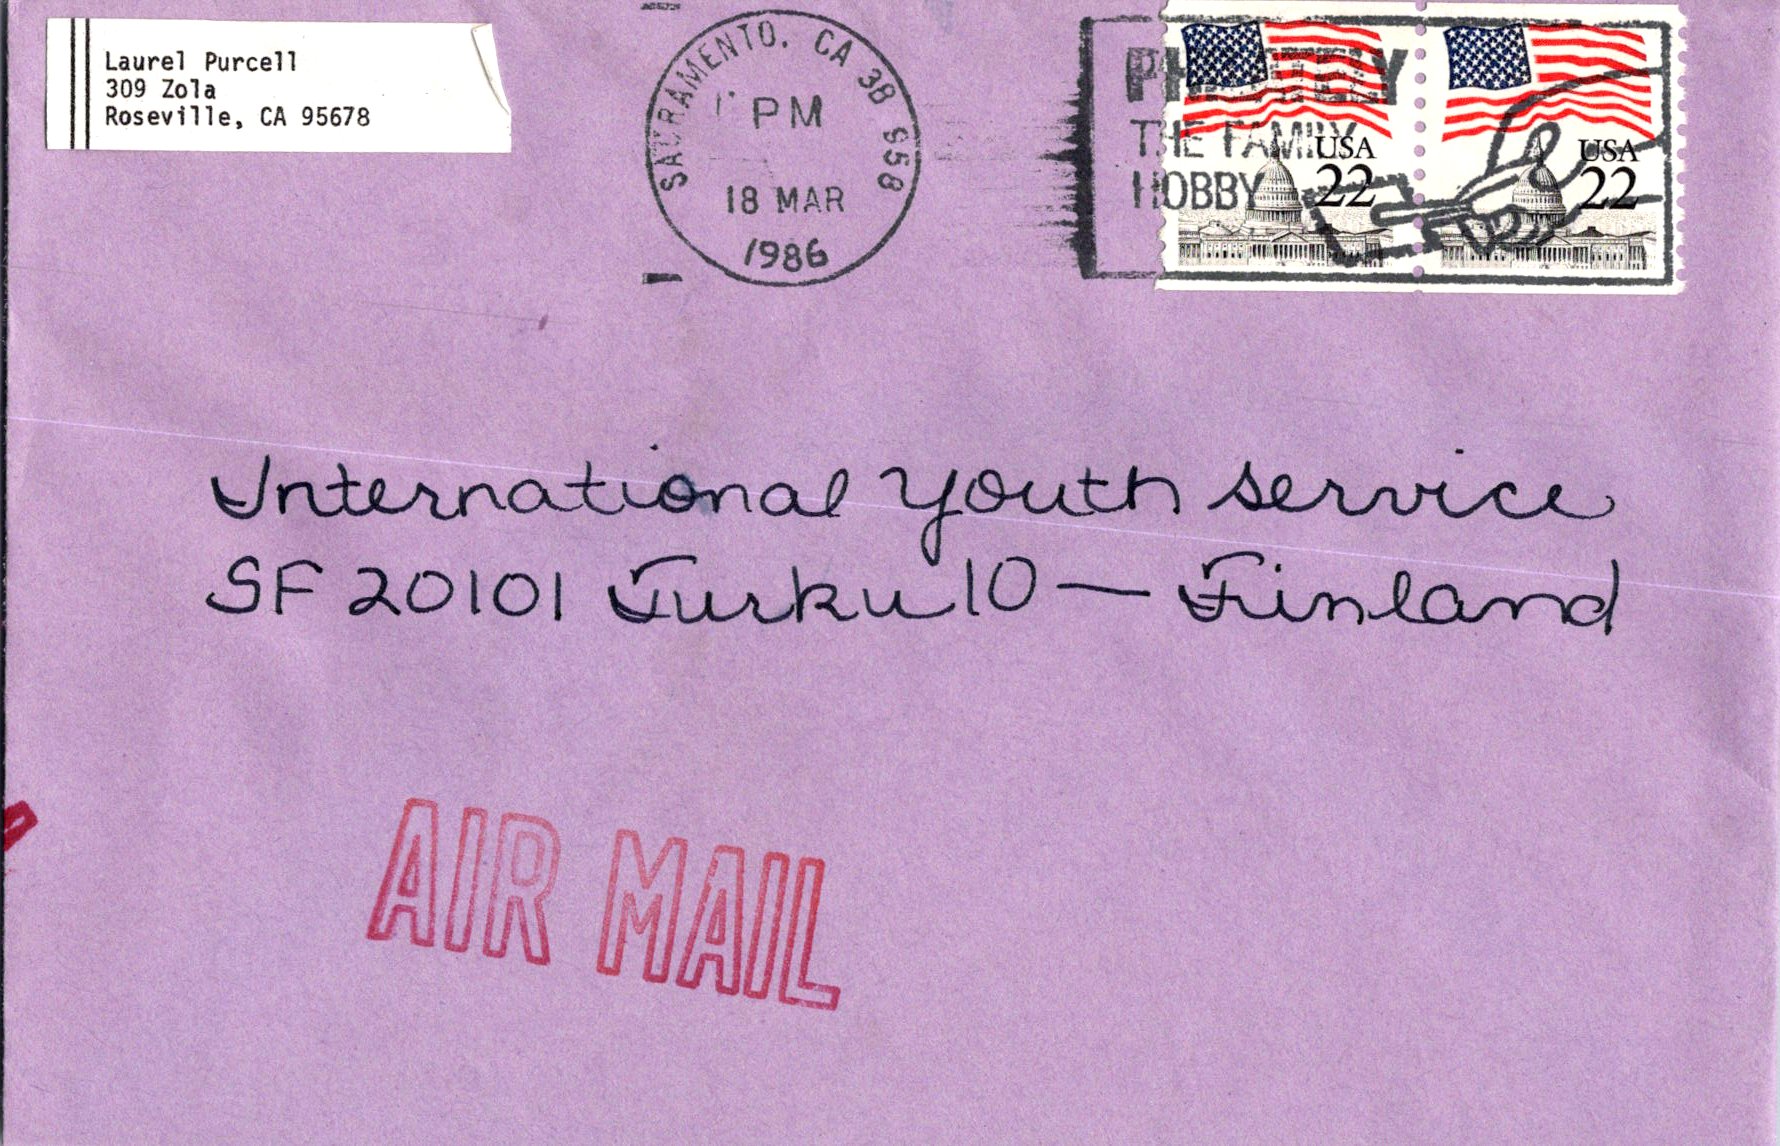 Laurel Purcell
309 Zola
Roseville, CA 95678
SACRAMENTO, CA 38 958
PM
18 MAR
1986
PHILATELY
THE FAMILY
HOBBY
USA
22
USA
22
International Youth Service
SF 20101 Turku 10 — Finland
AIR MAIL